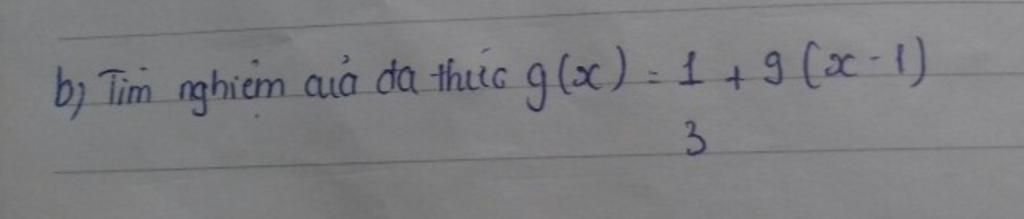 b) Tìm nghiệm cuả đa thức g(x) = 1 + 9 (x - 1)
3